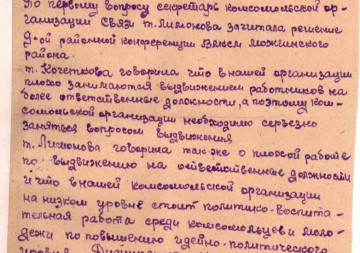 По первому вопросу секретарь комсомольской ор-
ганизации связи т. Лимонова зачитала решение
й районной конференции ВЛКСМ Можгинского
района.
т. Кочеткова говорила что в нашей организации
плохо занимаются выдвижением работников на
более ответственные должности, а поэтому ком-
сомольской организации необходимо серьезно
заняться вопросом выдвижения
т. Лимонова говорила также о плохой работе
по выдвижению на ответственные должности
и что в нашей комсомольской организации
на низком уровне стоит политико-воспита-
тельная работа среди комсомольцев и моло-
дежи по повышению идейно-политического
уровня.